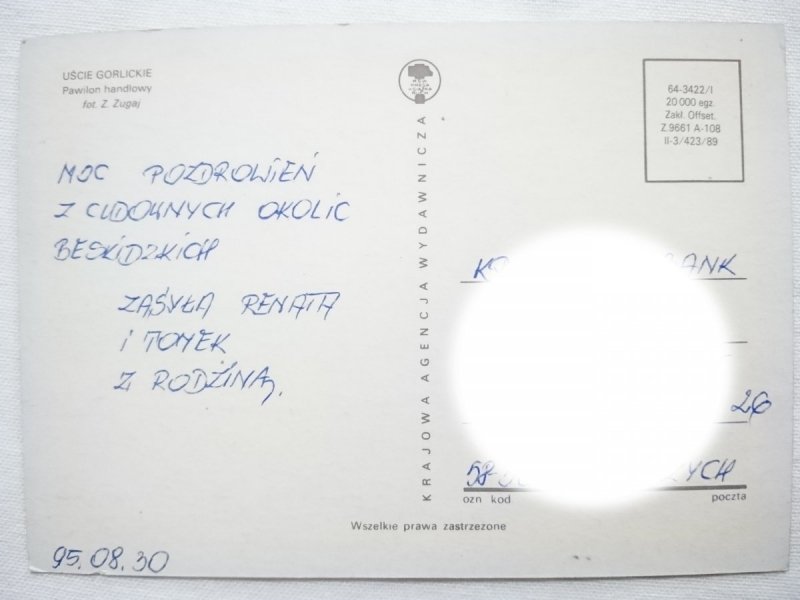 UŚCIE GORLICKIE
Pawilon handlowy
fot. Z. Zugaj
MOC POZDROWIEŃ
Z CUDOWNYCH OKOLIC
BESKIDZKICH
ZASYŁA RENATA
I TOMEK
Z RODZINĄ.
95.08.30
KRAJOWA AGENCJA WYDAWNICZA
64-3422/I
20 000 egz.
Zakł. Offset.
Z.9661 A-108
II-3/423/89
26
ozn kod poczta
Wszelkie prawa zastrzeżone